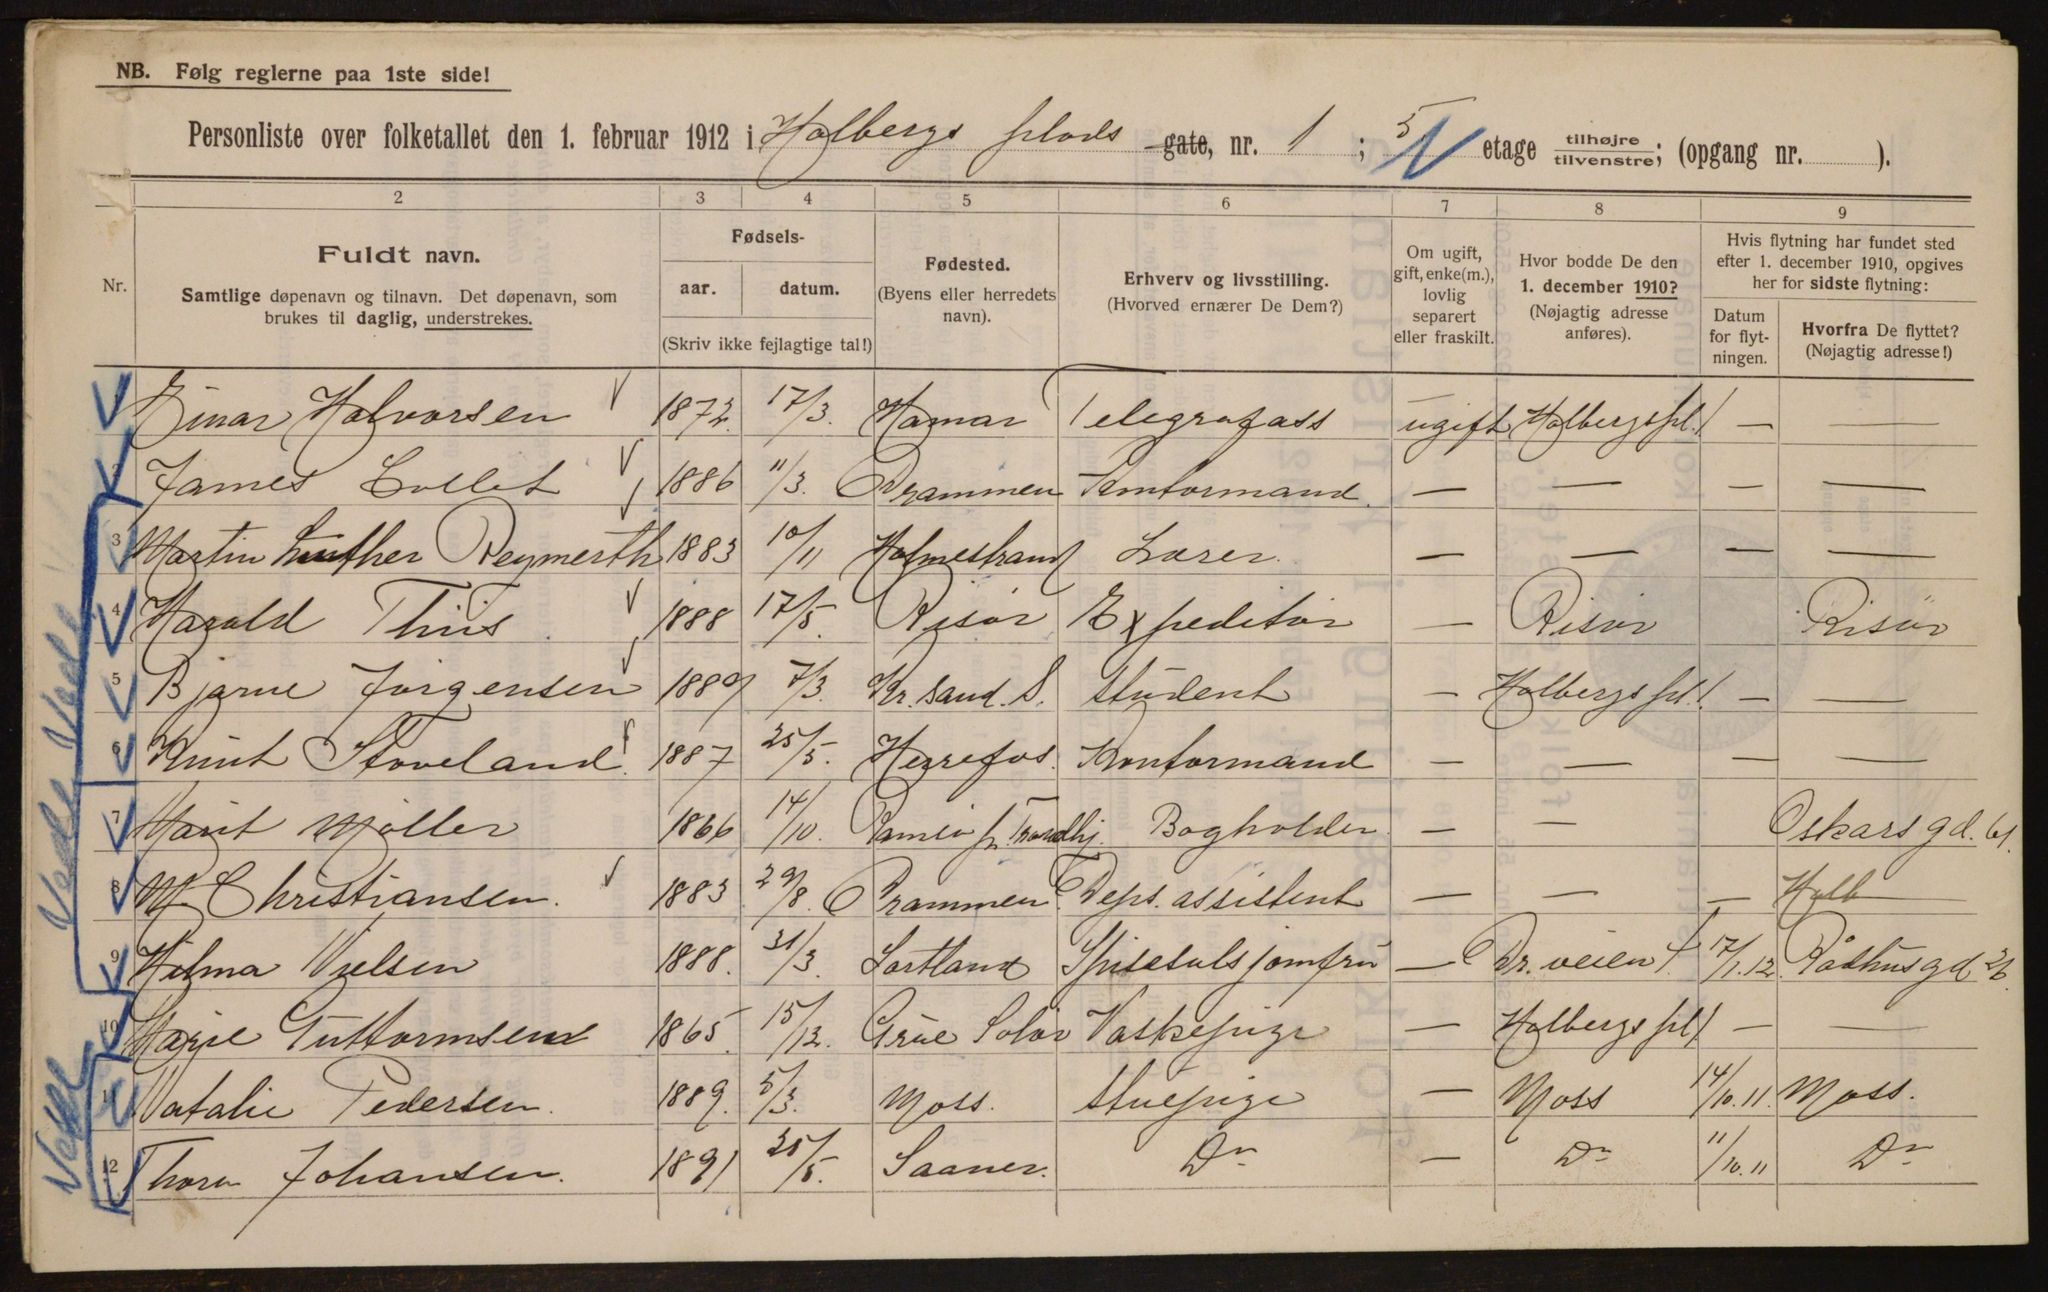 NB. Følg reglerne paa 1ste side!
Personliste over folketallet den 1. februar 1912 i Holbergs plads gate, nr. 1 ; 5 etage tilhøjre tilvenstre; (opgang nr. ).
2 3 4 5 6 7 8 9
Nr.
Fuldt navn.
Samtlige døpenavn og tilnavn. Det døpenavn, som
brukes til daglig, understrekes.
Fødsels-
aar. datum.
(Skriv ikke fejlagtige tal!)
Fødested.
(Byens eller herredets
navn).
Erhverv og livsstilling.
(Hvorved ernærer De Dem?)
Om ugift,
gift, enke(m.),
lovlig
separert
eller fraskilt.
Hvor bodde De den
1. december 1910?
(Nøjagtig adresse
anføres).
Hvis flytning har fundet sted
efter 1. december 1910, opgives
her for sidste flytning:
Datum
for flyt-
ningen.
Hvorfra De flyttet?
(Nøjagtig adresse!)
Einar Halvorsen 1872. 17/3. Hamar Telegrafass ugift Holbergspl. 1 — —
2 James Collet 1886 11/3. Drammen Kontormand — — — —
3 Martin Luther Reymerth 1883 10/11 Holmestrand Lærer. — — — —
4 Harald Thiis 1888 17/5. Risør Expeditør — Risør Risør
5 Bjarne Jørgensen 1889 7/3. Kr.sand. S. Student — Holbergspl. 1. — —
6 Knut Stoveland. 1887 25/5. Herrefos. Kontormand — — — —
7 Marit Møller 1866 14/10. Trondhj. Bogholder. — — Oskarsgd. 61.
8 M. Christiansen. 1883 29/8. Drammen. Deps. assistent — — — Holb
9 Hilma Nielsen 1888. 31/3. Sortland Spisesalsjomfru — Dr. veien 17/1.12 Rådhusgd 26.
10 Marie Guttormsen 1865. 15/12. Grue Solør Vaskepige — Holbergspl 1 — —
11 Natalie Pedersen. 1889. 5/3. Moss. Stuepige — Moss 14/10.11. Moss.
12 Thora Johansen. 1891 25/5. Saaner. Do — Do 11/10.11 Do